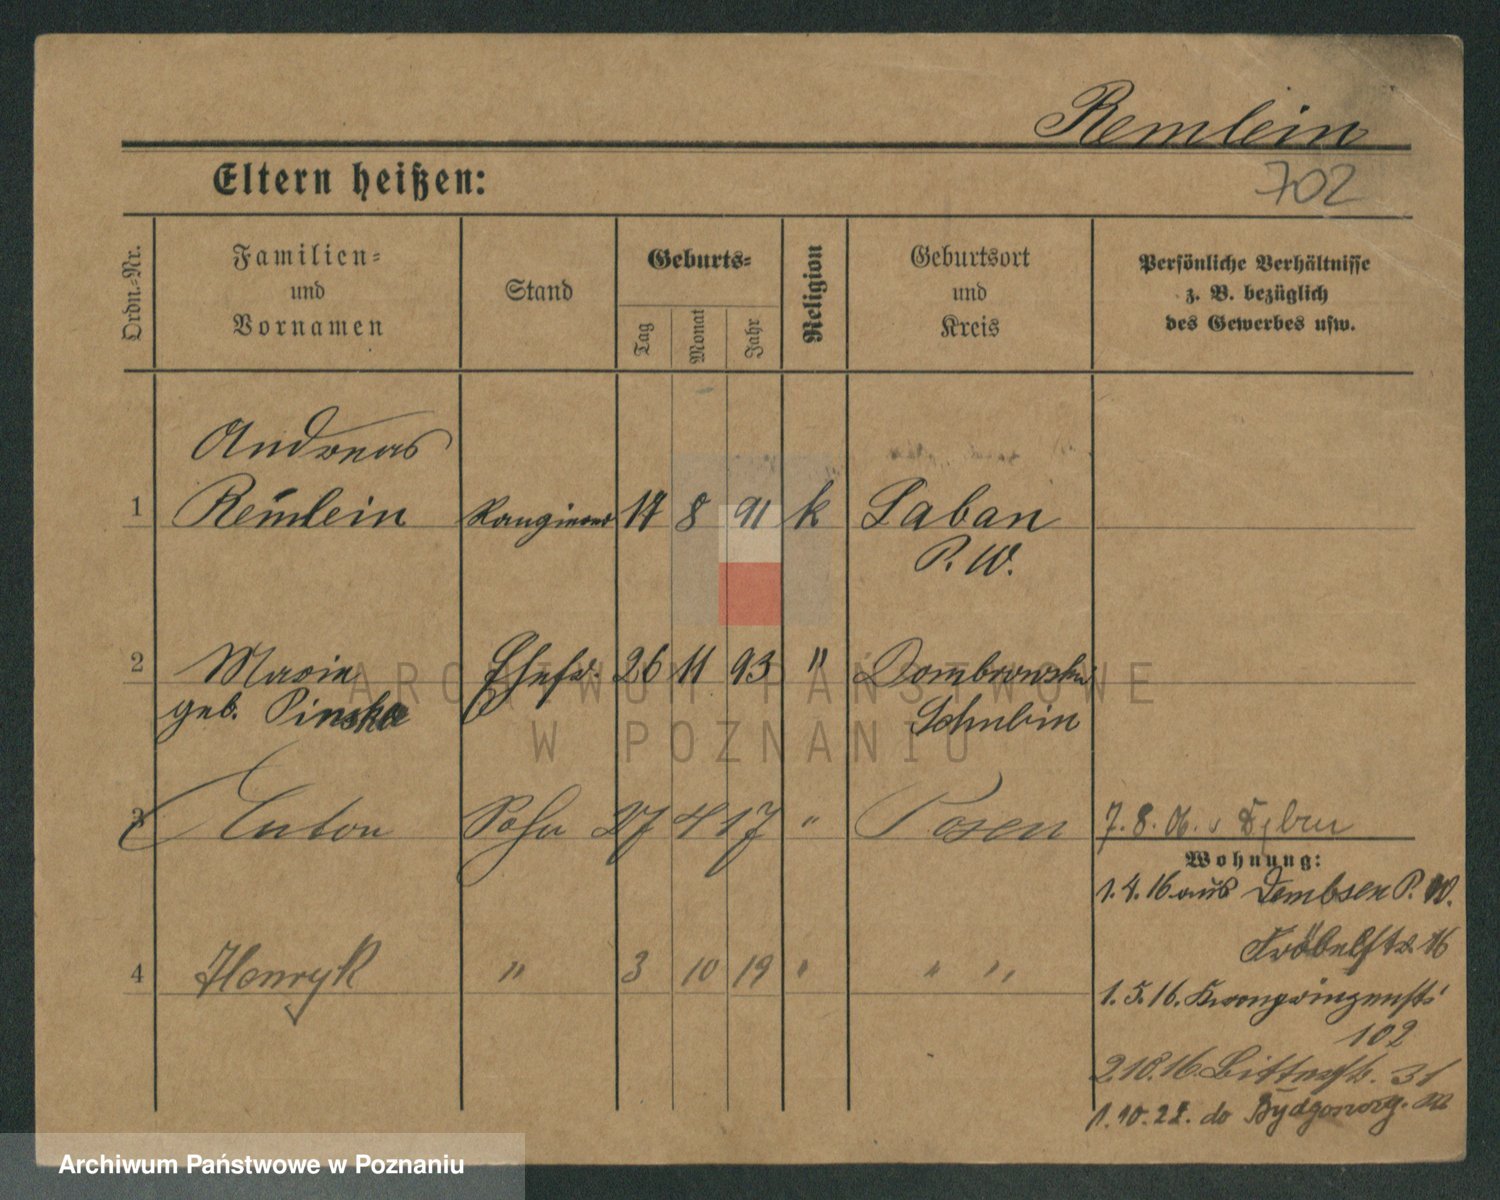 Remlein
702
Eltern heißen:
Ordn.-Nr.
Familien-
und
Vornamen
Stand
Geburts-
Tag
Monat
Jahr
Religion
Geburtsort
und
Kreis
Persönliche Verhältnisse
z. B. bezüglich
des Gewerbes usw.
Andreas
1 Remlein Rangierer 17 8 91 k Laban
P. W.
2 Marie Ehefr. 26 11 93 " Dombrowska
geb. Pinska Schubin
3 Anton Sohn 27 4 17 " Posen
7. 8. 06.
Wohnung:
1. 4. 16 aus Dembsen P. W.
Fröbelstr 16
4 Henryk " 3 10 19 " " "
1. 5. 16. Kronprinzenstr
102
2.10.16. Bitterstr. 31
1. 10. 22. do Bydgoszcz.
ARCHIWUM PAŃSTWOWE
W POZNANIU
Archiwum Państwowe w Poznaniu